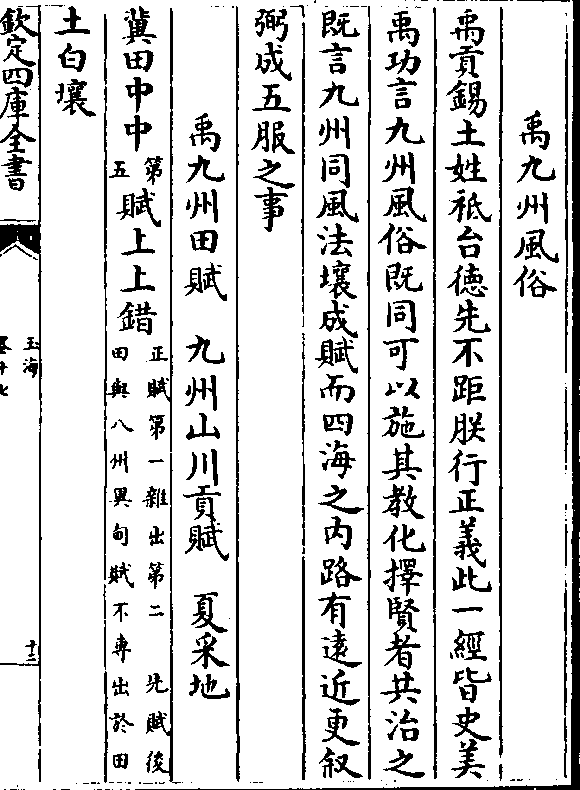 禹九州風俗
禹貢錫土姓祗台德先不距朕行正義此一經皆史美
禹功言九州風俗既同可以施其教化擇賢者共治之
既言九州同風法壤成賦而四海之内路有遠近更叙
弼成五服之事
禹九州田賦　九州山川貢賦　夏采地
冀田中中第五賦上上錯正賦第一雜出第二　先賦後田與八州異旬賦不專出於田
土白壤
欽定四庫全書
玉海
卷十七
十三